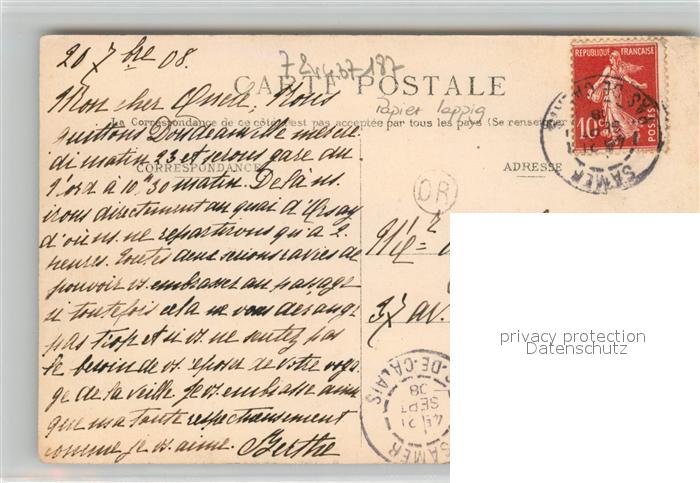 20 7bre 08.
CARTE POSTALE
Papier lappig
Mon cher Oncle, Nous
La Correspondance de ce côté n'est pas acceptée par tous les pays (Se renseigner
quittons Doudeauville mercre
di matin 23 et serons gare du
CORRESPONDANCE
ADRESSE
Nord à 10h30 matin. De là ns.
irons directement au quai d'Orsay
d'où ns. ne repartirons qu'à 2
heures. Toutes deux serions ravies de
pouvoir vs. embrasser au passage
si toutefois cela ne vous dérange
pas trop et si vs. ne sentez pas
le besoin de vs. reposer de votre voya
ge de la veille. Je vs. embrasse ainsi
que ma tante respectueusement
comme je vs. aime. Berthe
OR
37 av.
REPUBLIQUE FRANÇAISE
10c
POSTES
SAMER
PAS-DE-CALAIS
SAMER
P.-DE-CALAIS
21
SEPT
08
privacy protection
Datenschutz